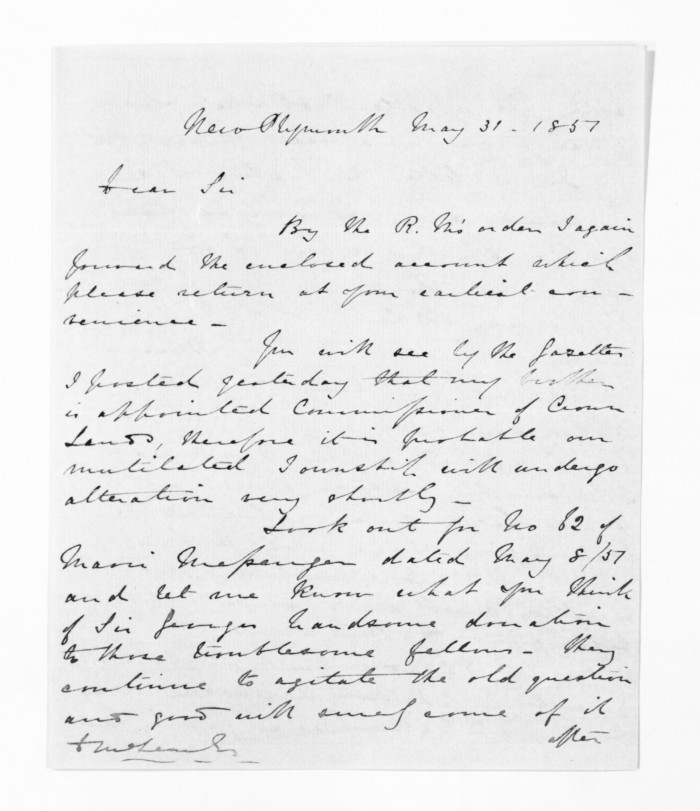 New Plymouth May 31 - 1851
Dear Sir
By the R. M's orders I again
forward the enclosed account which
please return at your earliest con-
venience -
You will see by the Gazettes
I posted yesterday that my brother
is appointed Commissioner of Crown
Lands, therefore it is probable our
mutilated Township will undergo
alteration very shortly -
Look out for No 62 of
Maori Messenger dated May 8/51
and let me know what you think
of Sir Georges handsome donation
to those troublesome fellows - they
continue to agitate the old question
and good will surely come of it
after
D McLean Esq